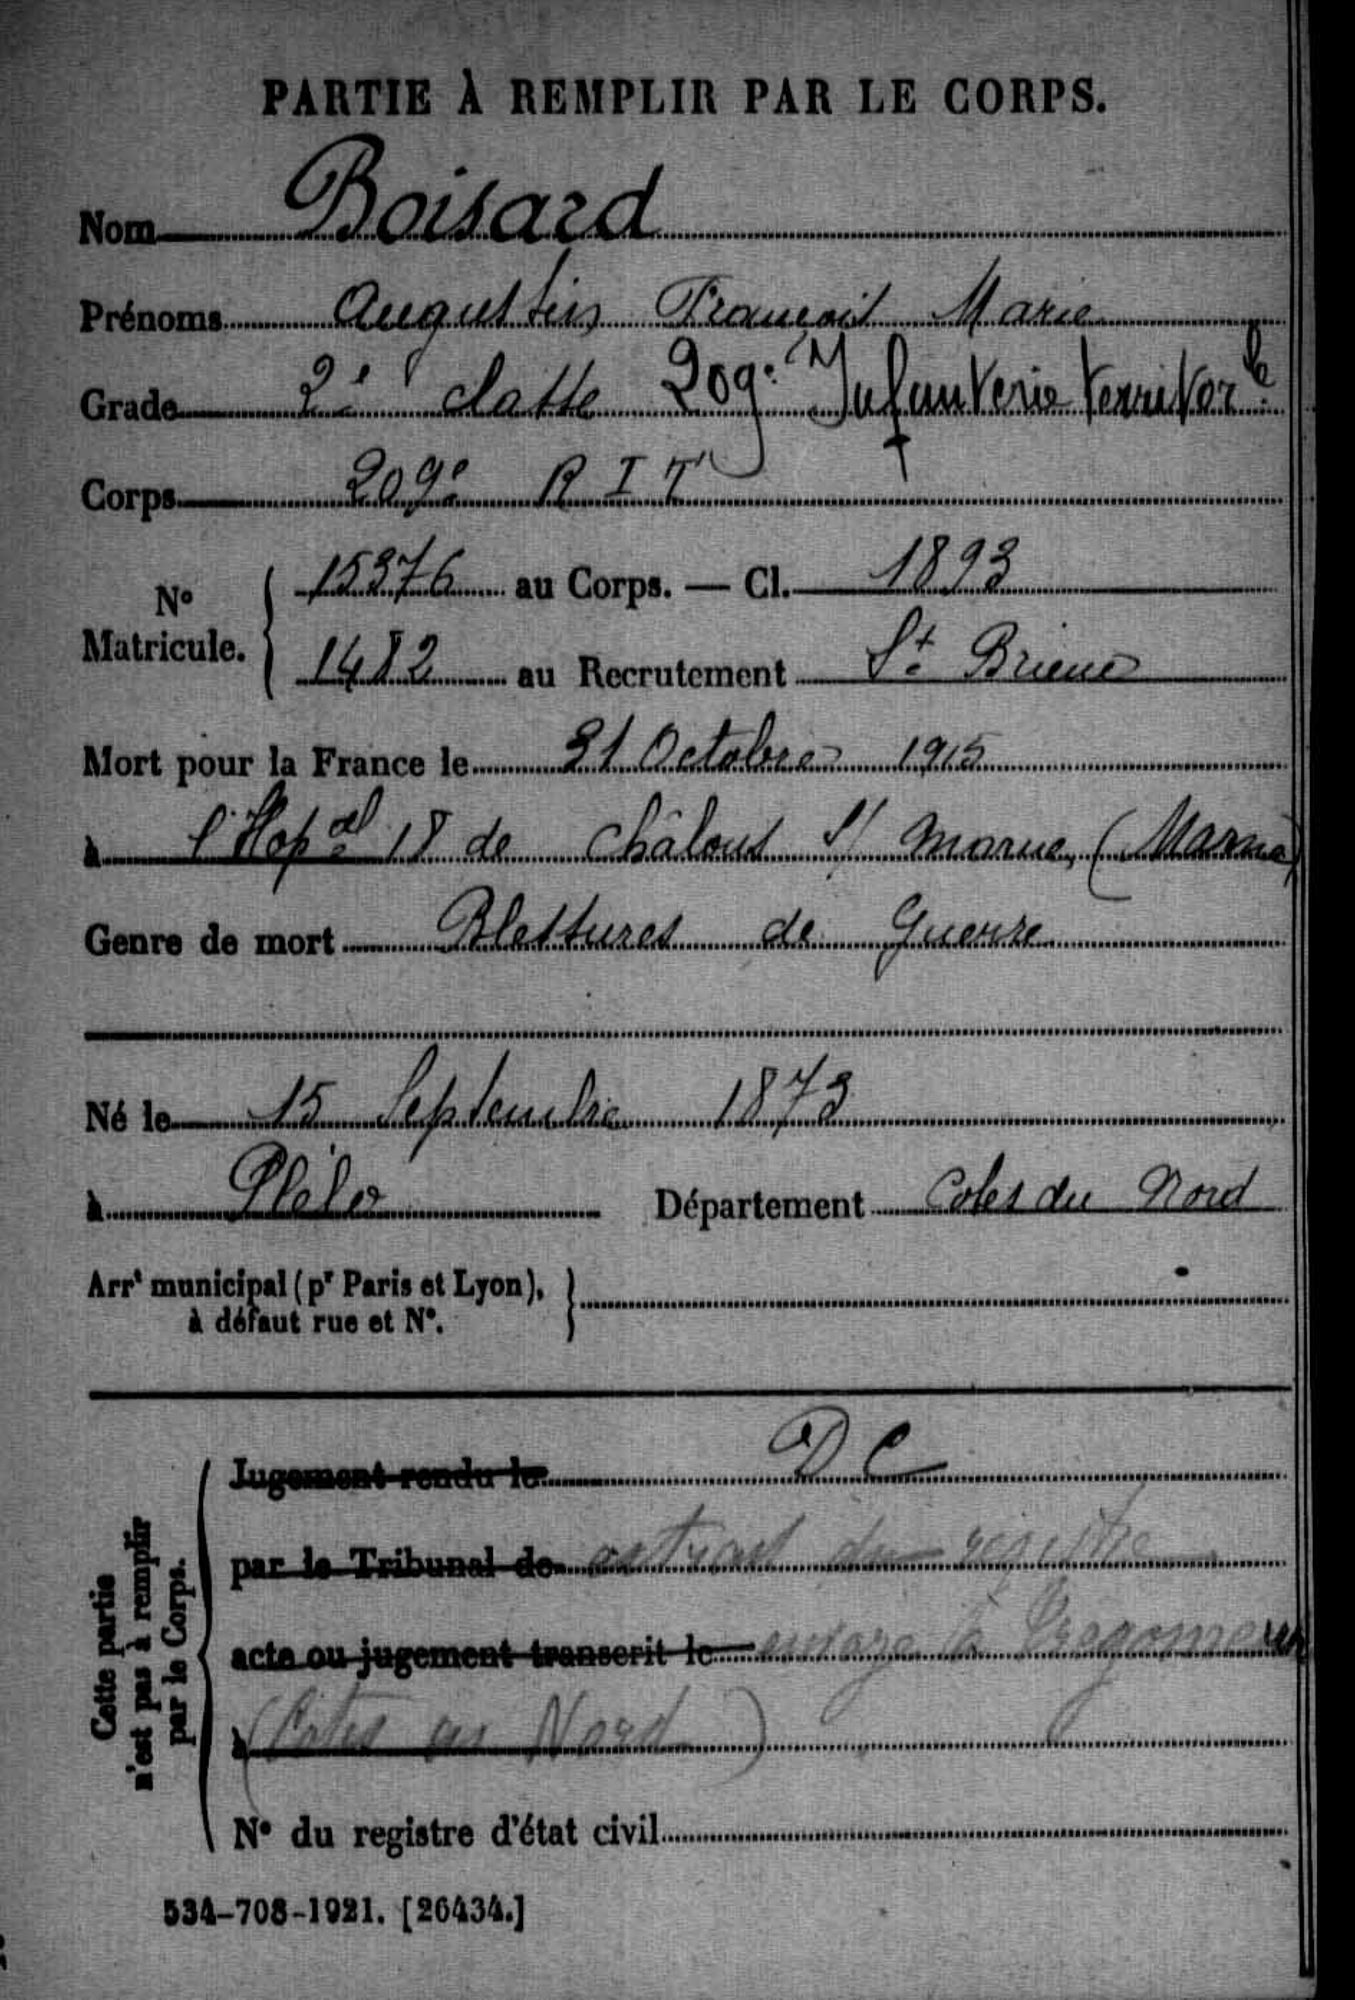 PARTIE À REMPLIR PAR LE CORPS.
Nom Boisard
Prénoms Augustin François Marie
Grade 2e classe 209e Infanterie territorle
Corps 209e R I T
N° Matricule. 15376 au Corps. — Cl. 1893
1482 au Recrutement St Brieuc
Mort pour la France le 31 Octobre 1915
à l'Hopal 18 de Châlons s/ Marne, (Marne)
Genre de mort Blessures de Guerre
Né le 15 Septembre 1873
à Plélo Département Cotes du Nord
Arrt municipal (pr Paris et Lyon),
à défaut rue et N°.
Cette partie
n'est pas à remplir
par le Corps.
Jugement rendu le DC
par le Tribunal de extrait du registre
acte ou jugement transcrit le envoyé à Trégomeur
à (Cotes du Nord)
N° du registre d'état civil
534-708-1921. [26434.]